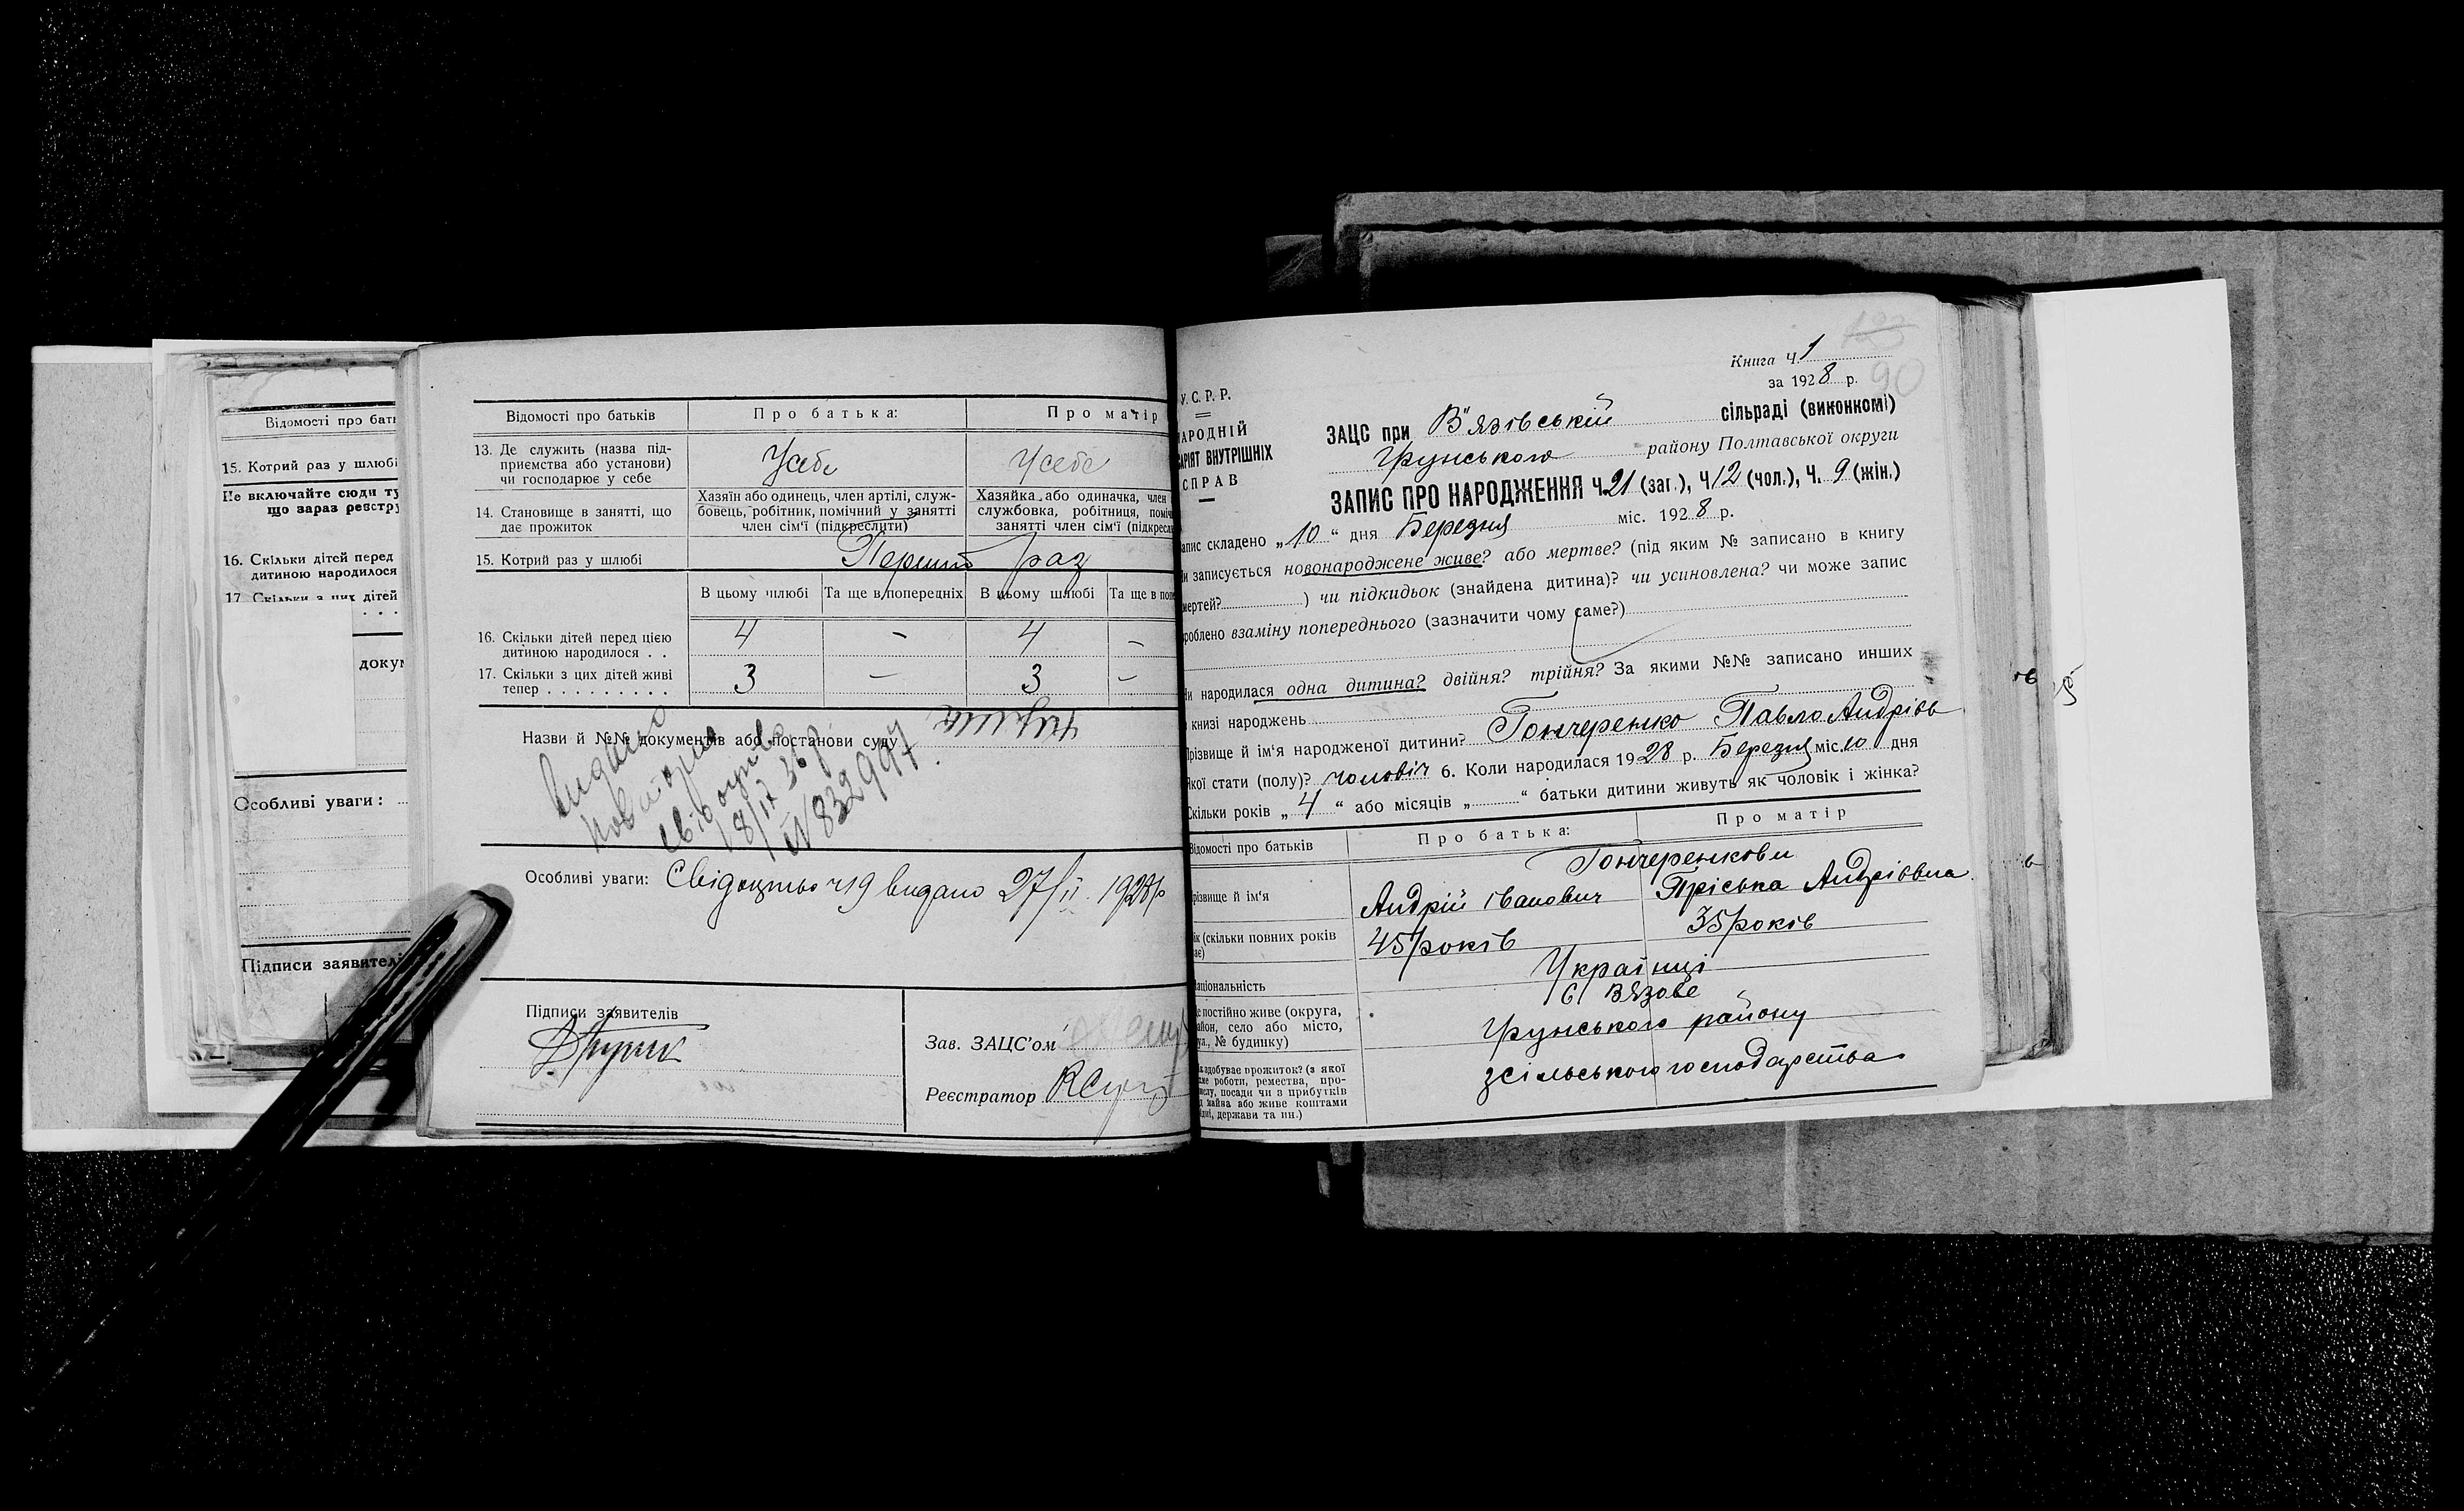 Відомості про бать
15. Котрий раз у шлюбі
Не включайте сюди ту
що зараз реєстру
16. Скільки дітей перед
дитиною народилося
17. Скільки з цих дітей
. . .
докум
Особливі уваги:
Підписи заявителі
Відомості про батьків Про батька: Про матір
13. Де служить (назва під-
приємства або установи)
чи господарює у себе
Усебе Усебе
14. Становище в занятті, що
дає прожиток
Хазяїн або одинець, член артілі, служ-
бовець, робітник, помічний у занятті
член сім'ї (підкреслити)
Хазяйка або одиначка, член
службовка, робітниця, поміч
занятті член сім'ї (підкресл
15. Котрий раз у шлюбі Перший раз
В цьому шлюбі Та ще в попередніх В цьому шлюбі Та ще в поп
16. Скільки дітей перед цією
дитиною народилося . . 4 – 4 –
17. Скільки з цих дітей живі
тепер . . . . . . . . . 3 – 3 –
Назви й №№ документів або постанови суду
Видано
повторне
свідоцтво
18/IX 36 р.
№ 832997.
Особливі уваги: Свідоцтво ч19 видано 27/II 1928р
Підписи заявителів
Зав. ЗАЦС'ом
Реєстратор
Книга Ч. 1
за 1928 р. 90
У. С. Р. Р.
НАРОДНІЙ
САРІЯТ ВНУТРІШНІХ
СПРАВ
ЗАЦС при В'язівській сільраді (виконкомі)
Грунського району Полтавської округи
ЗАПИС ПРО НАРОДЖЕННЯ Ч. 21 (заг.), Ч. 12 (чол.), Ч. 9 (жін.)
апис складено „10“ дня Березня міс. 1928 р.
и записується новонароджене живе? або мертве? (під яким № записано в книгу
мертей? ) чи підкидьок (знайдена дитина)? чи усиновлена? чи може запис
роблено взаміну попереднього (зазначити чому саме?)
и народилася одна дитина? двійня? трійня? За якими №№ записано инших
книзі народжень
Прізвище й ім'я народженої дитини? Гончеренко Павло Андрієв
Якої стати (полу)? чоловіч 6. Коли народилася 1928 р. Березня міс. 10 дня
Скільки років „4“ або місяців „ “ батьки дитини живуть як чоловік і жінка?
Відомості про батьків Про батька: Про матір
Гончеренкови
різвище й ім'я Андрій іванович Пріська Андріівна
ік (скільки повних років
ає) 45 років 35 років
аціональність Українці
е постійно живе (округа,
айон, село або місто,
ул., № будинку)
С. Вязове
Грунського району
к здобуває прожиток? (з якої
ме роботи, ремества, про-
ислу, посади чи в прибутків
д майва або живе коштами
ідні, держави та ин.)
зсільського господарства